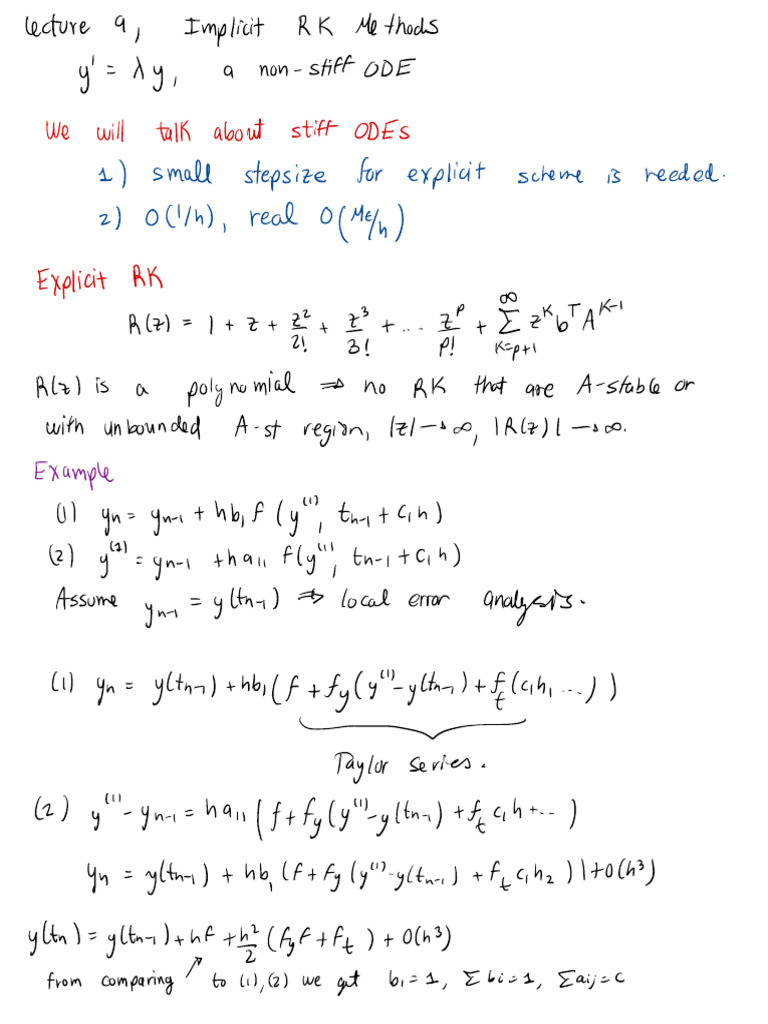 Lecture 9, Implicit RK Methods
y' = λy, a non-stiff ODE
We will talk about stiff ODEs
1) small stepsize for explicit scheme is needed.
2) O(1/h), real O(Mε/h)
Explicit RK
R(z) = 1 + z + z²/2! + z³/3! + ... z^p/p! + Σ_{K=p+1}^∞ z^K b^T A^{K-1}
R(z) is a polynomial ⇒ no RK that are A-stable or
with unbounded A-st region, |z| → ∞, |R(z)| → ∞.
Example
(1) yn = yn-1 + hb₁ f (y^(1), tn-1 + c₁h)
(2) y^(1) = yn-1 + ha₁₁ f(y^(1), tn-1 + c₁h)
Assume yn-1 = y(tn-1) ⇒ local error analysis.
(1) yn = y(tn-1) + hb₁ (f + fy (y^(1) - y(tn-1) + f_t (c₁h, ...) )
Taylor series.
(2) y^(1) - yn-1 = ha₁₁ (f + fy (y^(1) - y(tn-1) + f_t c₁h + ... )
yn = y(tn-1) + hb₁ (f + fy (y^(1) - y(tn-1) + f_t c₁h₂ )) + O(h³)
y(tn) = y(tn-1) + hf + h²/2 (fyf + f_t) + O(h³)
from comparing to (1), (2) we get b₁ = 1, Σbi = 1, Σaij = c